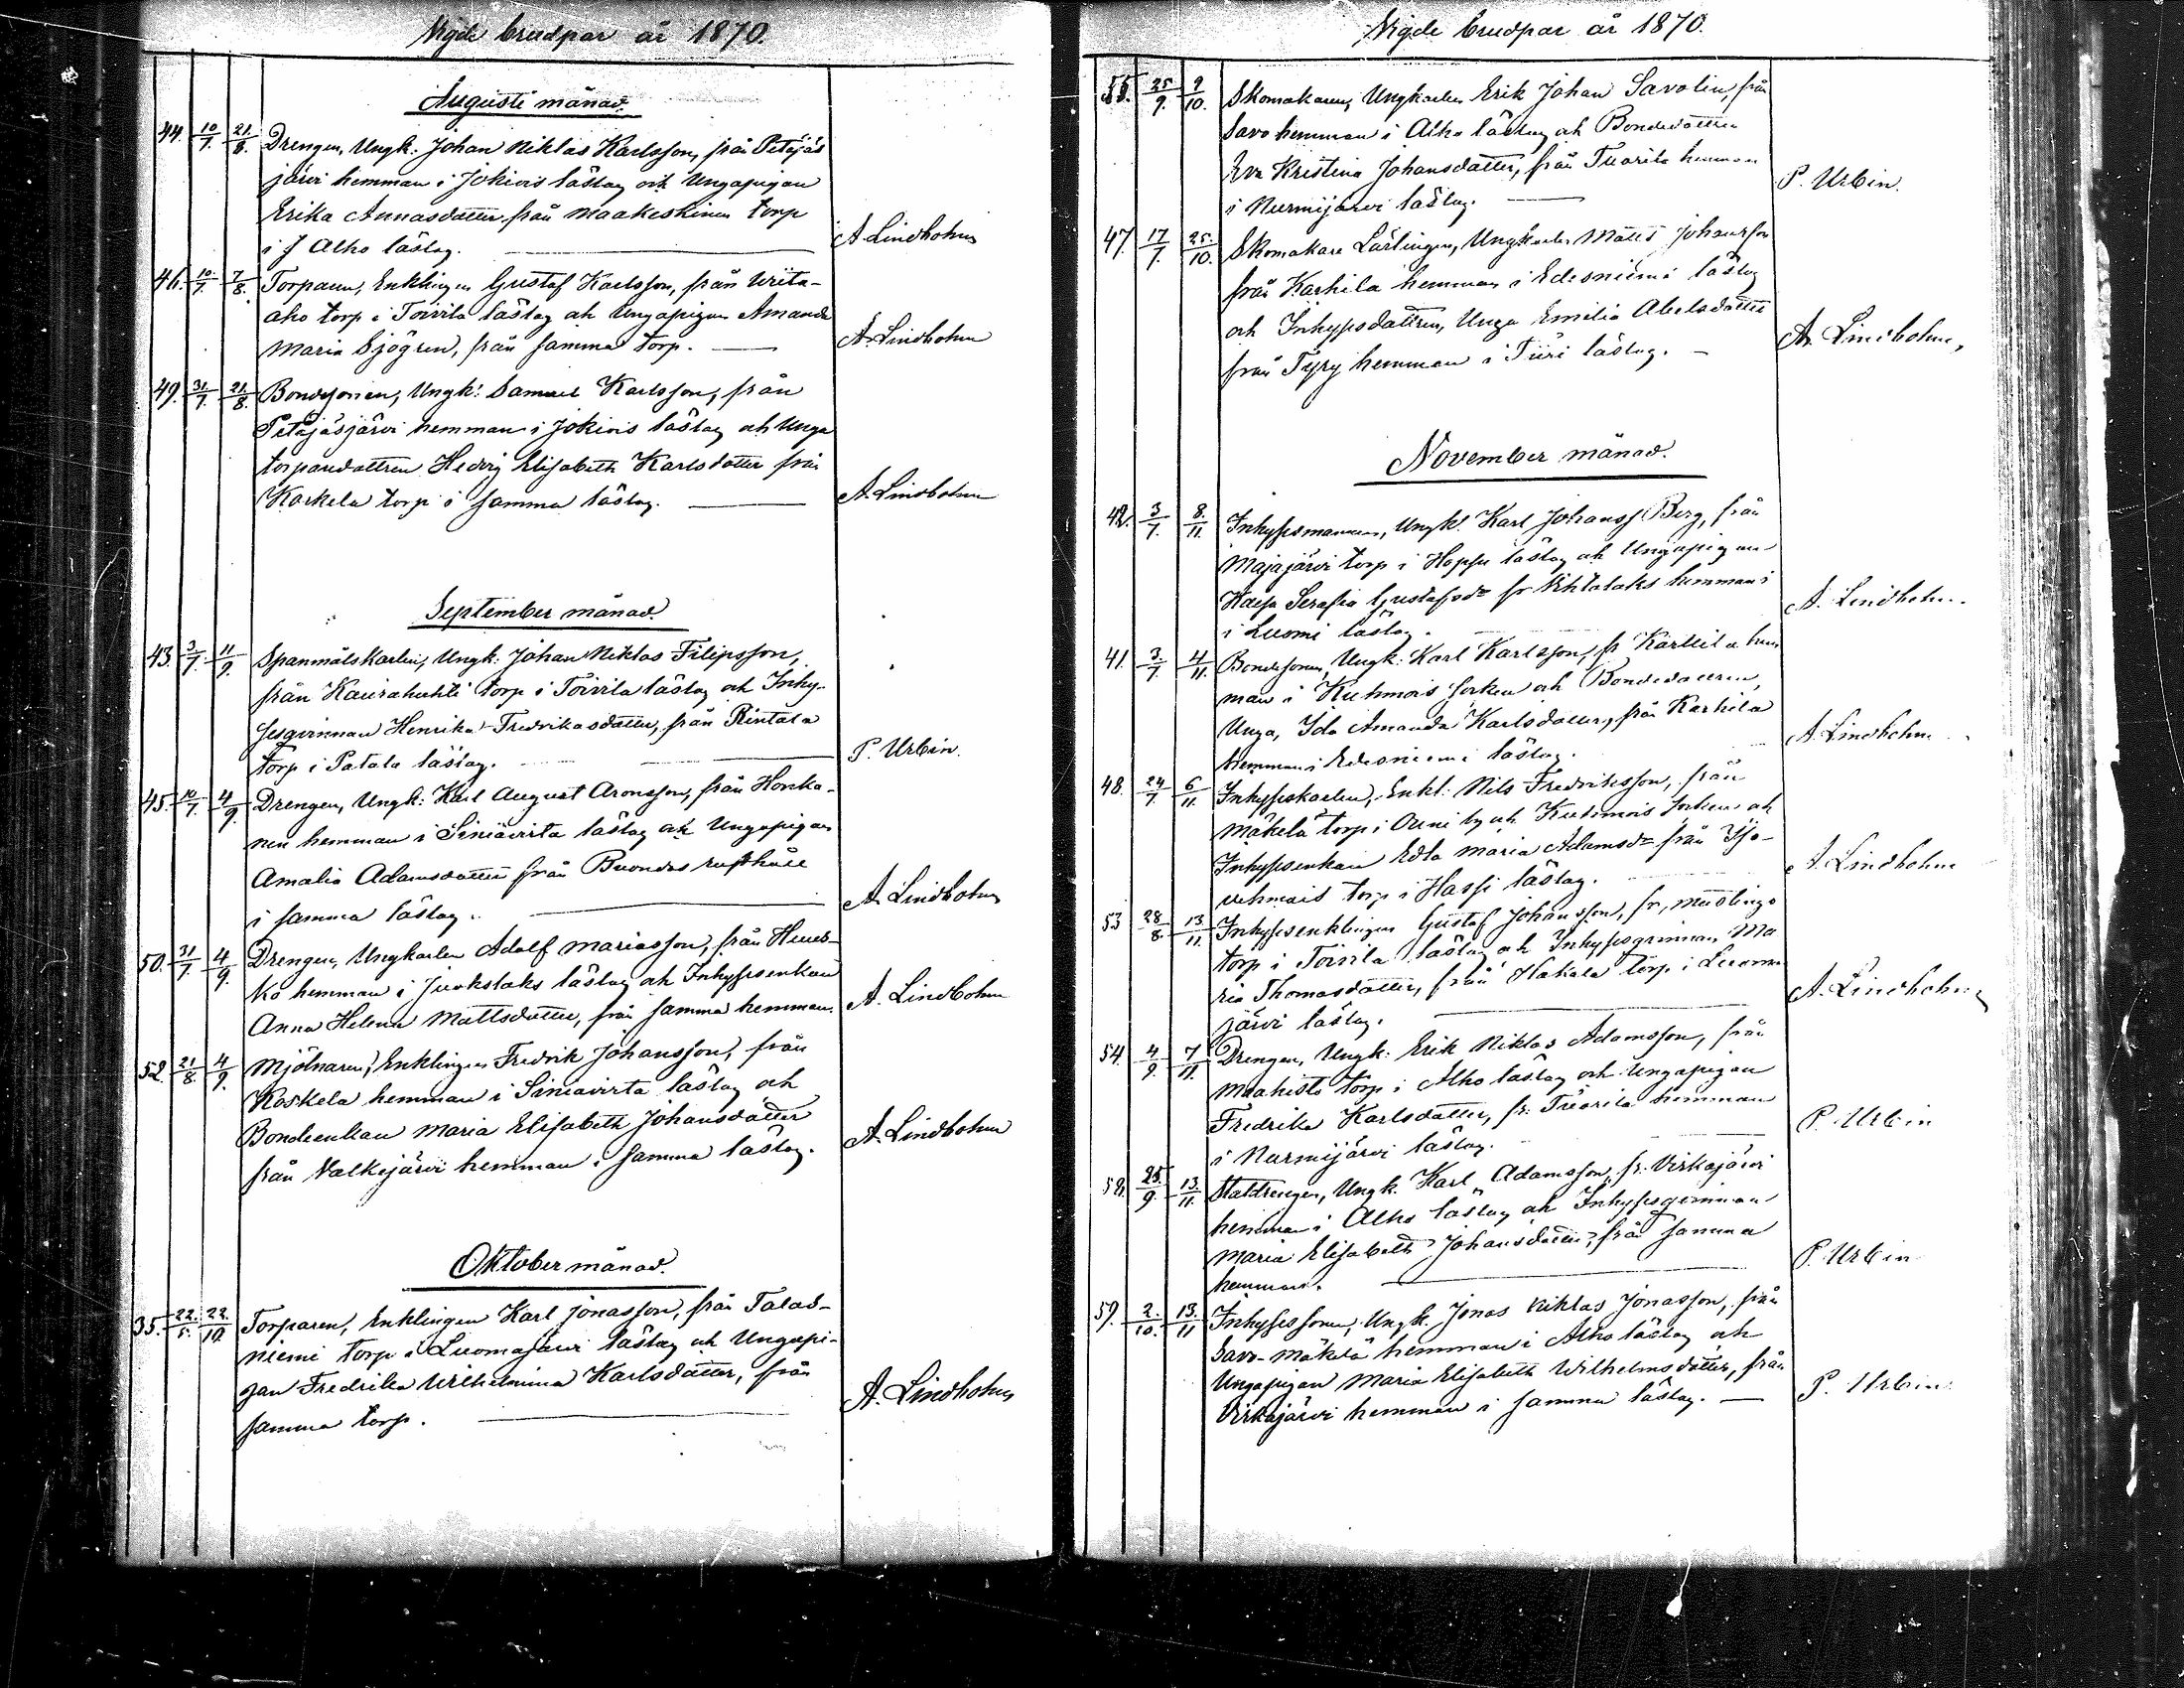 Vigde brudpar år 1870.
Augusti månad.
44. 10/7. 21/8. Drengen, Ungk. Johan Niklas Karlsson, från Petäjäs
järvi hemman i Jokivis låstag och Ungapigan
Erika Annasdotter från Maakeskinen torp
i J Alho låstag. A Lindholm
46. 10/7. 7/8. Torparen, Enklingen Gustaf Karlsson, från Wiita-
aho torp i Toivila låstag och Ungapigan Amanda
Maria Sjögren, från samma torp. A. Lindholm
49. 31/7. 21/8. Bondesonen, Ungk: Samuel Karlsson, från
Petäjäsjärvi hemman i Jokivis låstag och Unga
torparedottren Hedvig Elisabeth Karlsdotter från
Karkela torp i samma låstag. A. Lindholm
September månad.
43. 3/7. 11/9. Spanmålskarlen, Ungk: Johan Niklas Filipsson,
från Kaurahuhti torp i Toivila låstag och Inhy-
sesqvinnan Henrika Fredrikasdotter, från Rintala
torp i Patala låstag. P. Urbin.
45. 10/7. 4/9. Drengen, Ungk: Karl August Aronsson, från Honka-
nen hemman i Siniävirta låstag och Ungapigan
Amalia Adamsdotter från Buondas rusthåll
i samma låstag. A. Lindholm
50. 31/7. 4/9. Drengen, Ungkarlen Adolf Mariasson, från
ko hemman i Juokslaks låstag och Inhyssenkan
Anna Helena Mattsdotter, från samma hemman. A. Lindholm
52. 21/8. 4/9. Mjölnaren, Enklingen Fredrik Johansson, från
Koskela hemman i Siniävirta låstag och
Bondeenkan Maria Elisabeth Johansdotter
från Valkejärvi hemman i samma låstag. A. Lindholm
Oktober månad.
35. 22./5. 22./10. Torparen, Enklingen Karl Jonasson, från Talas-
niemi torp i Luomajärvi låstag och Ungapi-
gan Fredrika Wilhelmina Karlsdotter, från
samma torp. A. Lindholm
Vigde brudpar år 1870.
55. 25/9. 9/10. Skomakaren, Ungkarlen Erik Johan Savolin, från
Savo hemman i Alho låstag och Bondedottren
Eva Kristina Johansdotter, från Tuorila hemman
i Nurmijärvi låstag. P. Urbin.
47. 17/7. 25./10. Skomakare Lärlingen, Ungkarlen Matts Johansson
från Karhila hemman i Edesniemi låstag
och Inhysesdottren, Unga Emilia Abelsdotter
från Tyry hemman i Tiiri låstag. A. Lindholm,
November månad.
42. 3/7. 8./11. Inhysesmannen, Ungk: Karl Johanss Berg, från
Majajärvi torp i Hopsu låstag och Ungapigan
Kaisa Serafia Gustafsdr fr Vihtalaks hemman i
i Luomi låstag. A. Lindholm.
41. 3/7. 4/11. Bondesonen, Ungk: Karl Karlsson, fr hem
man i Kuhmois socken och Bondedottren,
Unga, Ida Amanda Karlsdotter, från Karhila
hemman i Edesniemi låstag. A. Lindholm
48. 24/7. 6/11. Inhyseskarlen, Enkl: Nils Fredriksson, från
Mäkelä torp i by och Kuhmois socken och
Inhyssenkan Edla Maria Adamsdr från
vehmais torp i Hassi låstag. A. Lindholm
53 28/8. 13/11. Inhysesenklingen Gustaf Johansson, fr,
torp i Toivila låstag och Inhysesqvinnan Ma
ria Thomasdotter, från Hakala torp i Luoma
järvi låstag. A. Lindholm
54. 4/9. 7/11. Drengen, Ungk: Erik Niklas Adamsson, från
Maahisto torp i Alho låstag och Ungapigan
Fredrika Karlsdotter, fr: Tuorila hemman
i Nurmijärvi låstag. P. Urbin
58. 25./9. 13./11. Statdrengen, Ungk. Karl Adamsson, fr. Virkajärvi
hemman i Alho låstag och Inhysesqvinnan
Maria Elisabeth Johansdotter, från samma
hemman. P. Urbin
59. 2./10. 13./11 Inhysessonen, Ungk. Jonas Niklas Jonasson, från
Savo-Mäkelä hemman i Alho låstag och
Ungapigan Maria Elisabeth Wilhelmsdotter, från
Virkajärvi hemman i samma låstag. P. Urbin